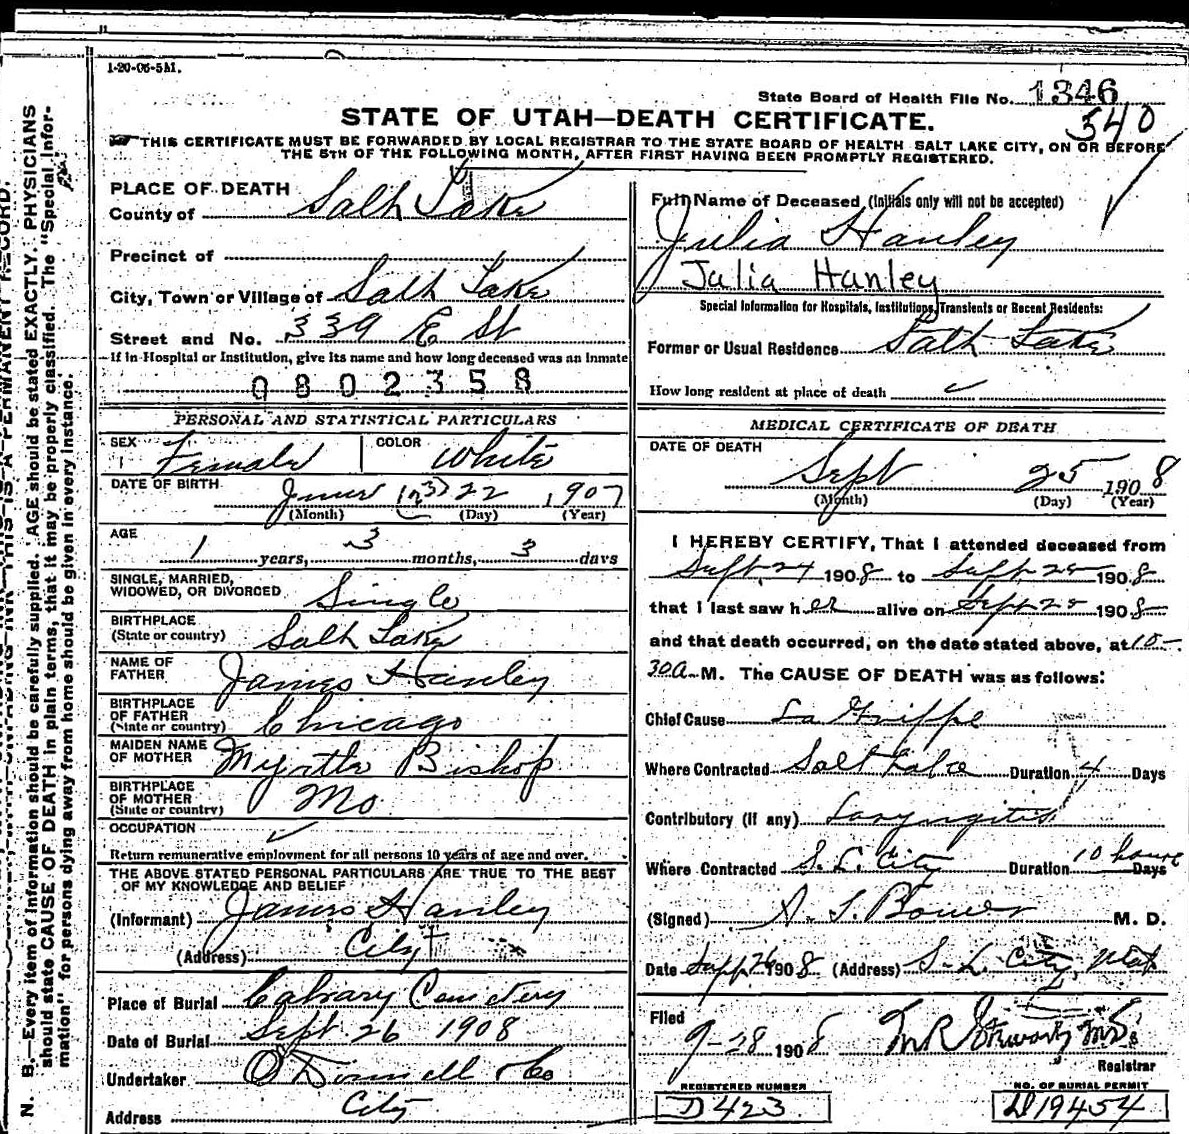 1-20-06-5M.
State Board of Health File No. 1346
540
STATE OF UTAH—DEATH CERTIFICATE.
THIS CERTIFICATE MUST BE FORWARDED BY LOCAL REGISTRAR TO THE STATE BOARD OF HEALTH SALT LAKE CITY, ON OR BEFORE
THE 5TH OF THE FOLLOWING MONTH, AFTER FIRST HAVING BEEN PROMPTLY REGISTERED.
PLACE OF DEATH
County of Salt Lake
Precinct of
City, Town or Village of Salt Lake
Street and No. 339 E St
If in Hospital or Institution, give its name and how long deceased was an inmate
0802358
PERSONAL AND STATISTICAL PARTICULARS
SEX Female COLOR White
DATE OF BIRTH June 22 1907
(Month) (Day) (Year)
AGE
1 years, 3 months, 3 days
SINGLE, MARRIED,
WIDOWED, OR DIVORCED Single
BIRTHPLACE
(State or country) Salt Lake
NAME OF
FATHER James Hanley
BIRTHPLACE
OF FATHER
(State or country) Chicago
MAIDEN NAME
OF MOTHER Myrtle Bishop
BIRTHPLACE
OF MOTHER
(State or country) Mo
OCCUPATION
Return remunerative employment for all persons 10 years of age and over.
THE ABOVE STATED PERSONAL PARTICULARS ARE TRUE TO THE BEST
OF MY KNOWLEDGE AND BELIEF
(Informant) James Hanley
(Address) City
Place of Burial Calvary Cemetery
Date of Burial Sept. 26 1908
Undertaker O'Donnell & Co
Address City
Full Name of Deceased (Initials only will not be accepted)
Julia Hanley
Julia Hanley
Special Information for Hospitals, Institutions, Transients or Recent Residents:
Former or Usual Residence Salt Lake
How long resident at place of death
MEDICAL CERTIFICATE OF DEATH
DATE OF DEATH
Sept 25 1908
(Month) (Day) (Year)
I HEREBY CERTIFY, That I attended deceased from
Sept. 24 1908 to Sept. 25 1908
that I last saw her alive on Sept 25 1908
and that death occurred, on the date stated above, at 10-
30a M. The CAUSE OF DEATH was as follows:
Chief Cause La Grippe
Where Contracted Salt Lake Duration 4 Days
Contributory (if any) Laryngitis
Where Contracted S. L. City Duration 10 hours Days
(Signed) A. S. Bower M. D.
Date Sept 26 1908 (Address) S. L. City, Utah
Filed
9-28 1908 M R Stewart MD
Registrar
REGISTERED NUMBER
D423
NO. OF BURIAL PERMIT
D19454
N. B.—Every item of information should be carefully supplied. AGE should be stated EXACTLY. PHYSICIANS
should state CAUSE OF DEATH in plain terms, that it may be properly classified. The "Special Infor-
mation" for persons dying away from home should be given in every instance.